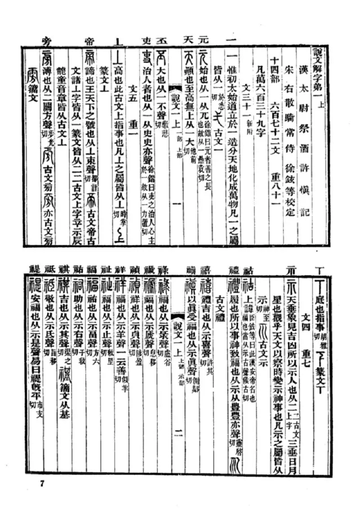 說文解字弟一上
漢太尉祭酒許愼記
宋右散騎常侍徐鉉等校定
十四部 六百七十二文 重八十一
凡萬六百三十九字
文三十一新附
一 惟初太始道立於一造分天地化成萬物凡一之屬
皆从一 於悉切 弌 古文一
元 始也从一从兀 徐鍇曰元者善之長也故从一愚袁切
天 顚也至高無上从一大 他前切
說文一上 一部 上部 一
丕 大也从一不聲 敷悲切
吏 治人者也从一从史史亦聲 徐鍇曰吏之治人心主於一故从一力置切
文五 重一
丄 高也此古文上指事也凡丄之屬皆从丄 時掌切 上
篆文丄
帝 諦也王天下之號也从丄朿聲 都計切 古文帝古
文諸丄字皆从一篆文皆从二二古文上字䇂示辰
龍童音章皆从古文丄
旁 溥也从二闕方聲 步光切 古文㫄 亦古文㫄
籀文
丅 底也指事 胡雅切 篆文丅
文四 重七
示 天垂象見吉凶所以示人也从二 二古文上字 三垂日月
星也觀乎天文以察時變示神事也凡示之屬皆从
示 神至切 古文示
祜 上諱
禮 履也所以事神致福也从示从豊豊亦聲 靈啓切
古文禮
禧 禮吉也从示喜聲 許其切
禛 以眞受福也从示眞聲 側鄰切
說文一上 上部 示部 二
祿 福也从示彔聲 盧谷切
禠 福也从示虒聲 息移切
禎 祥也从示貞聲 陟盈切
祥 福也从示羊聲一云善 似羊切
祉 福也从示止聲 敕里切
福 祐也从示畐聲 方六切
祐 助也从示右聲 于救切
祺 吉也从示其聲 渠之切 籀文从基
祗 敬也从示氐聲 旨移切
禔 安福也从示是聲易曰禔旣平 市支切
7